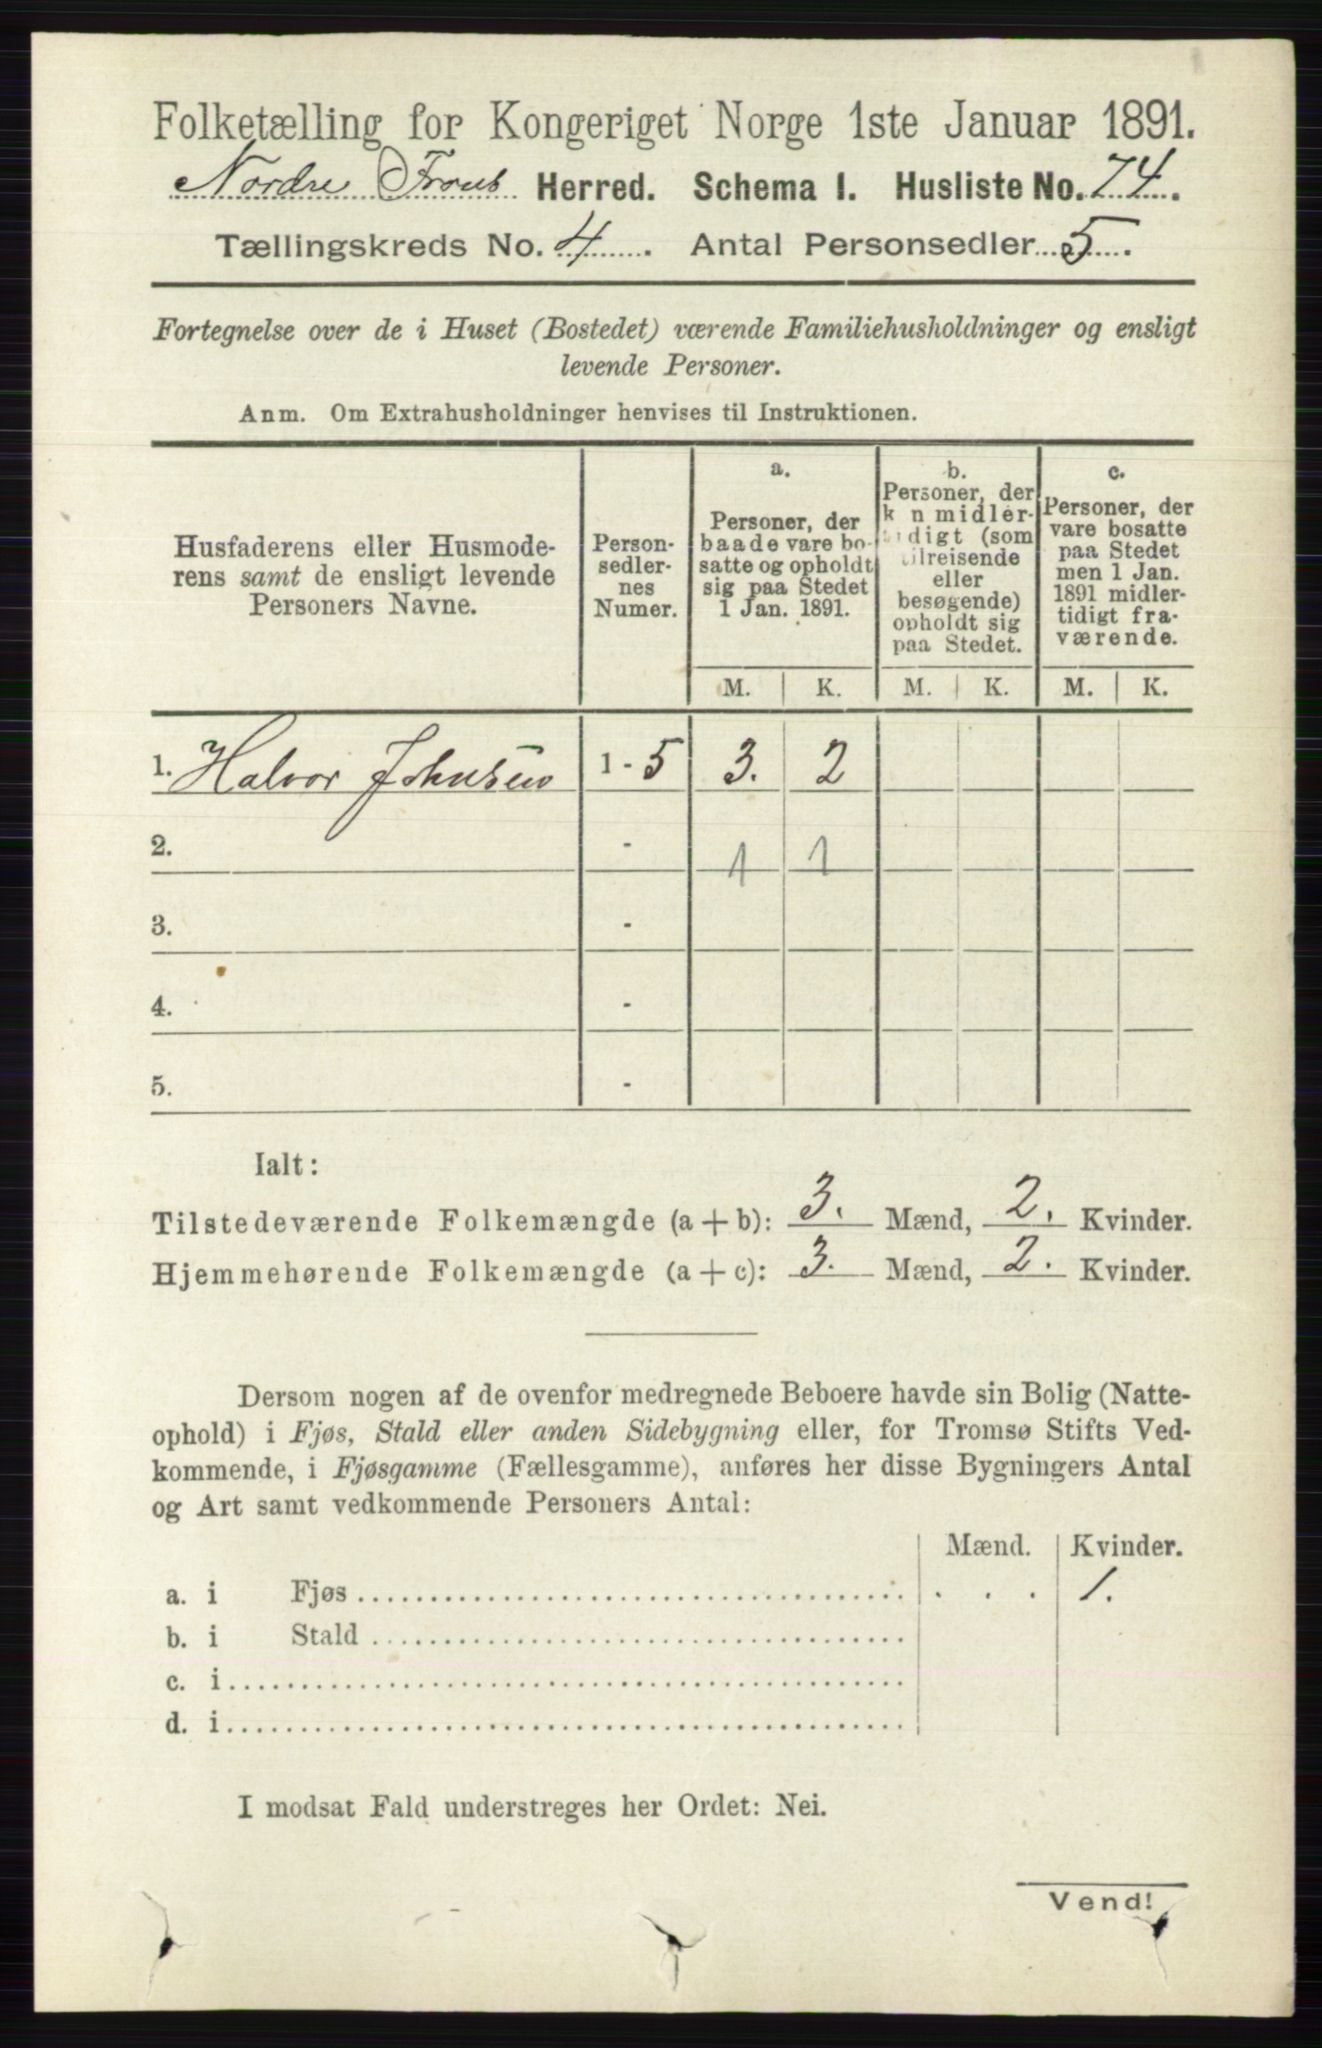 Folketælling for Kongeriget Norge 1ste Januar 1891.
Nordre Herred. Schema I. Husliste No. 74.
Tællingskreds No. 4. Antal Personsedler 5.
Fortegnelse over de i Huset (Bostedet) værende Familiehusholdninger og ensligt
levende Personer.
Anm. Om Extrahusholdninger henvises til Instruktionen.
Husfaderens eller Husmode-
rens samt de ensligt levende
Personers Navne.
Person-
sedler-
nes
Numer.
a.
Personer, der
baade vare bo-
satte og opholdt
sig paa Stedet
1 Jan. 1891.
b.
Personer, der
k n midler-
tidigt (som
tilreisende
eller
besøgende)
opholdt sig
paa Stedet.
c.
Personer, der
vare bosatte
paa Stedet
men 1 Jan.
1891 midler-
tidigt fra-
værende.
M. K. M. K. M. K.
1. Halvor Johnsen 1 - 5 3. 2
2. - 1 1
3. -
4. -
5. -
Ialt:
Tilstedeværende Folkemængde (a + b): 3. Mænd, 2. Kvinder.
Hjemmehørende Folkemængde (a + c): 3. Mænd, 2. Kvinder.
Dersom nogen af de ovenfor medregnede Beboere havde sin Bolig (Natte-
ophold) i Fjøs, Stald eller anden Sidebygning eller, for Tromsø Stifts Ved-
kommende, i Fjøsgamme (Fællesgamme), anføres her disse Bygningers Antal
og Art samt vedkommende Personers Antal:
Mænd. Kvinder.
a. i Fjøs . . . 1.
b. i Stald
c. i
d. i
I modsat Fald understreges her Ordet: Nei.
Vend!